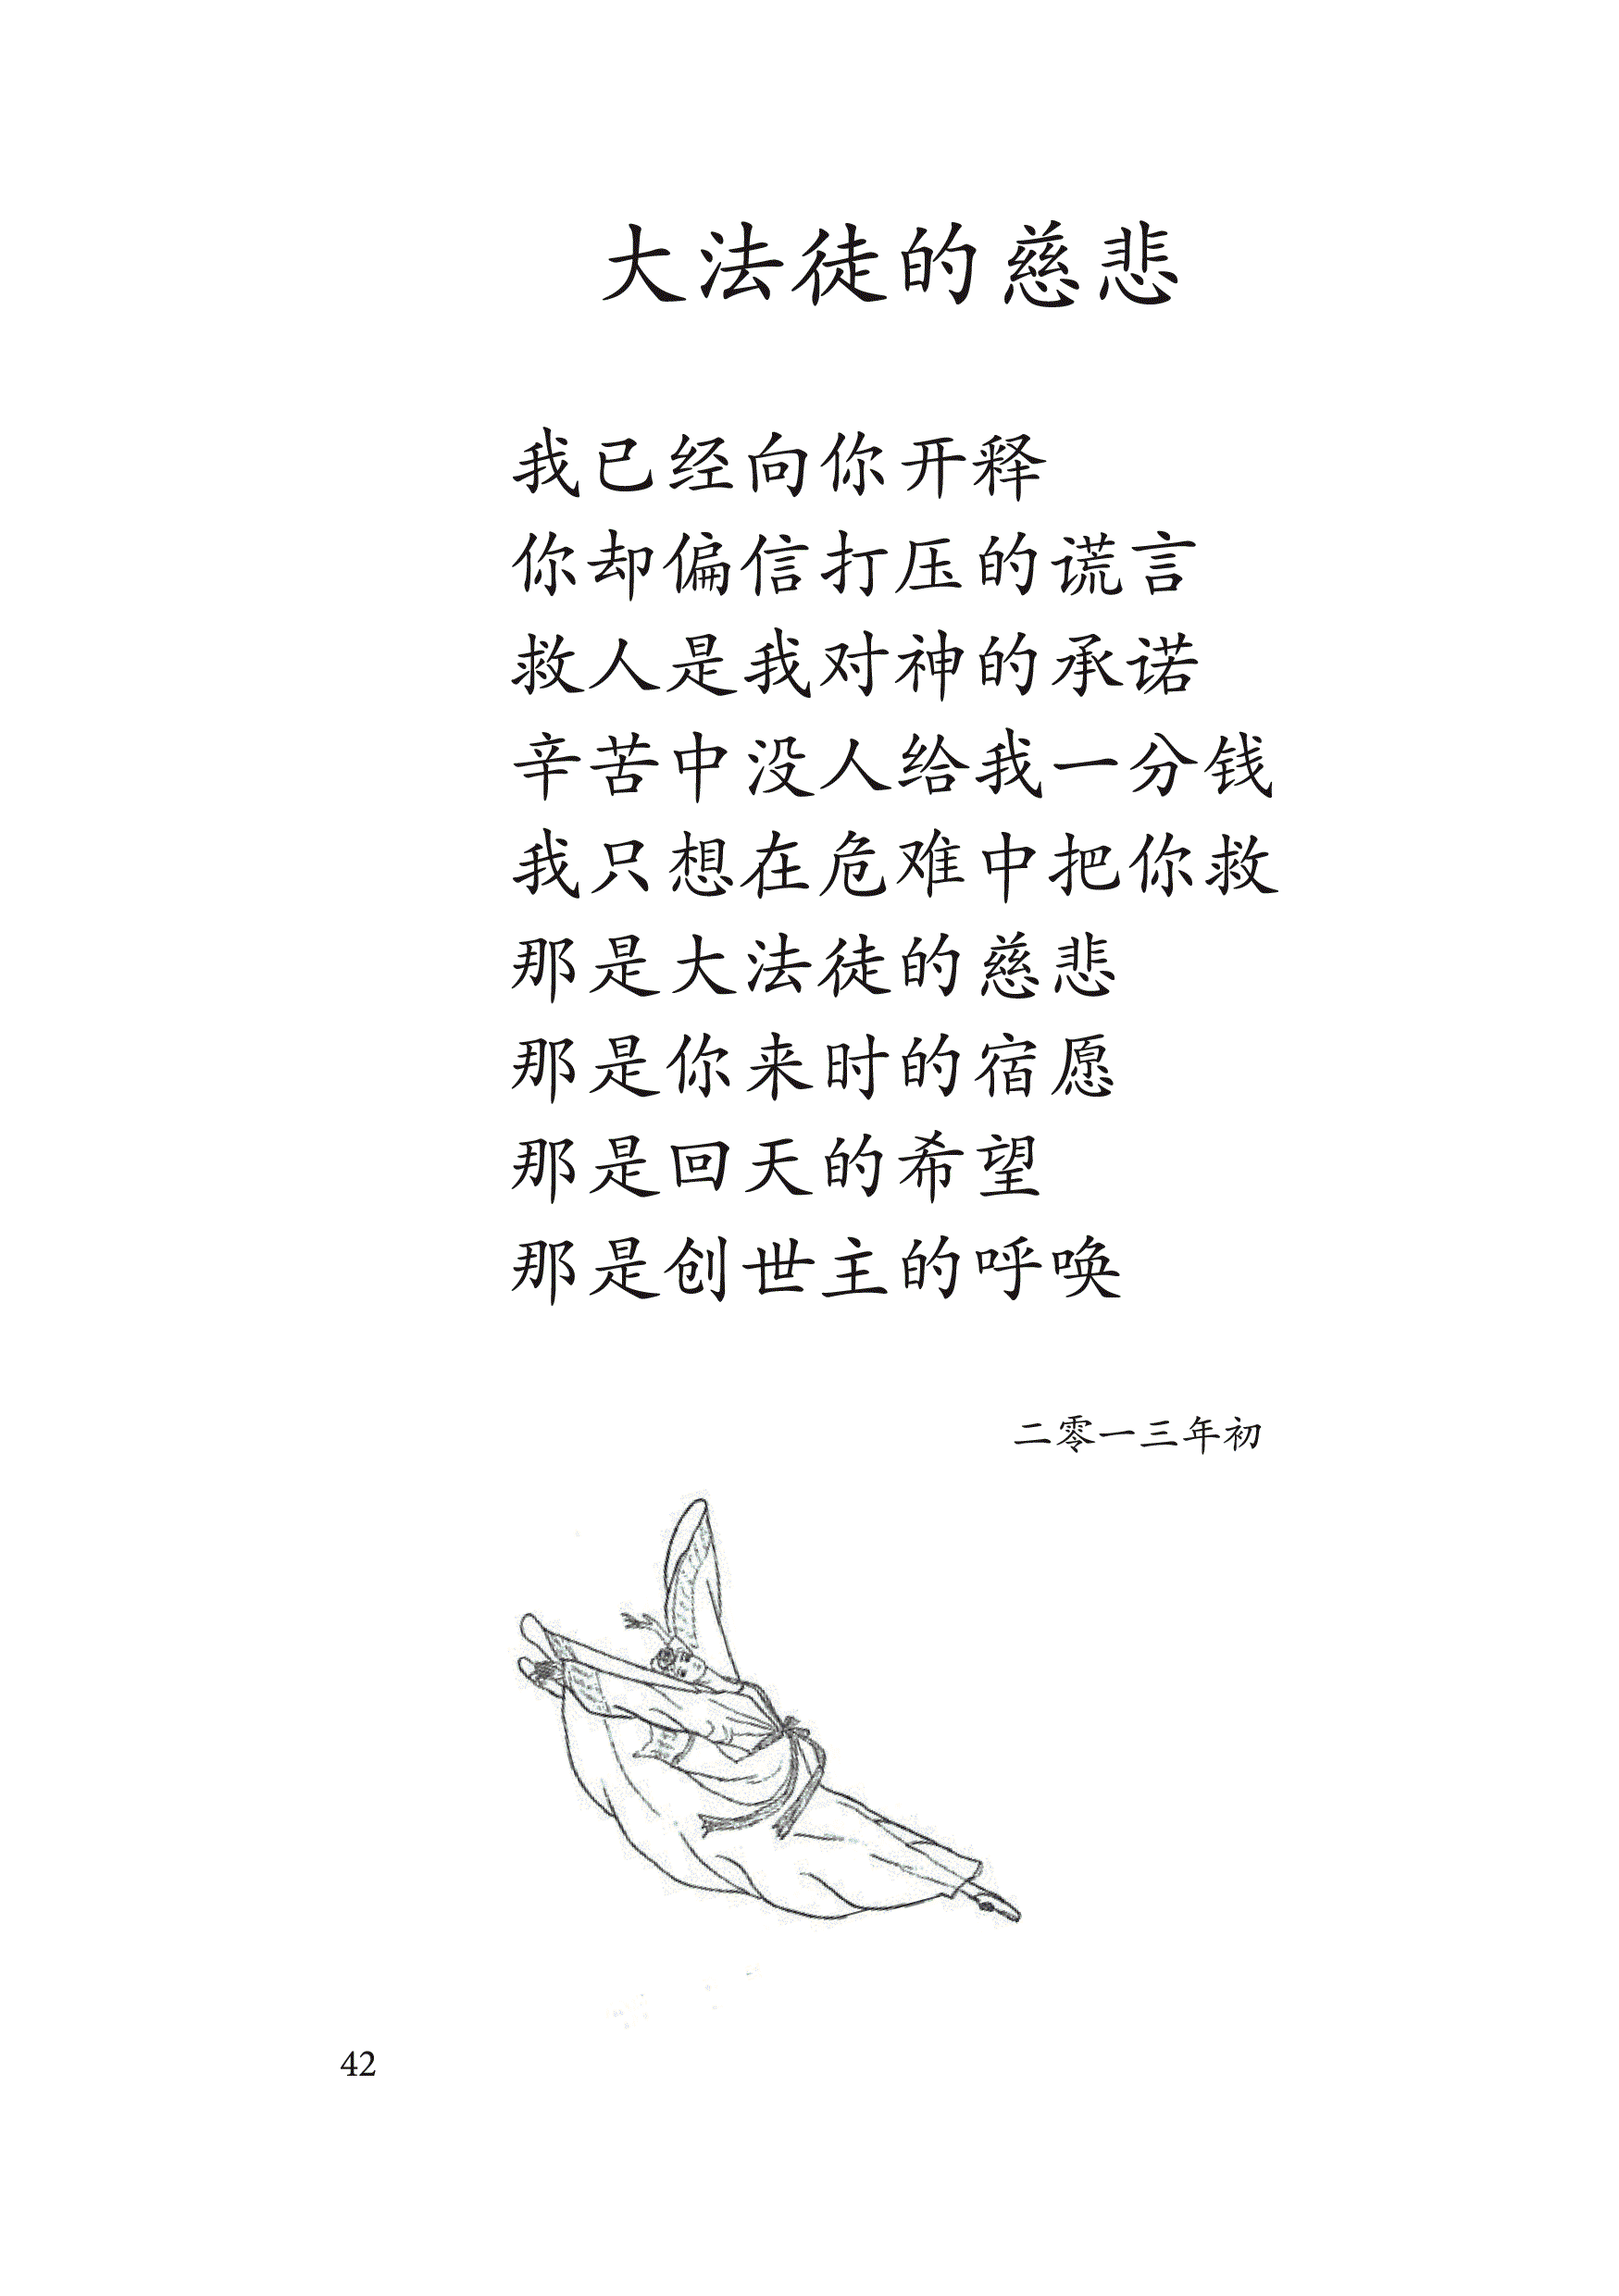 大法徒的慈悲
我已经向你开释
你却偏信打压的谎言
救人是我对神的承诺
辛苦中没人给我一分钱
我只想在危难中把你救
那是大法徒的慈悲
那是你来时的宿愿
那是回天的希望
那是创世主的呼唤
二零一三年初
42